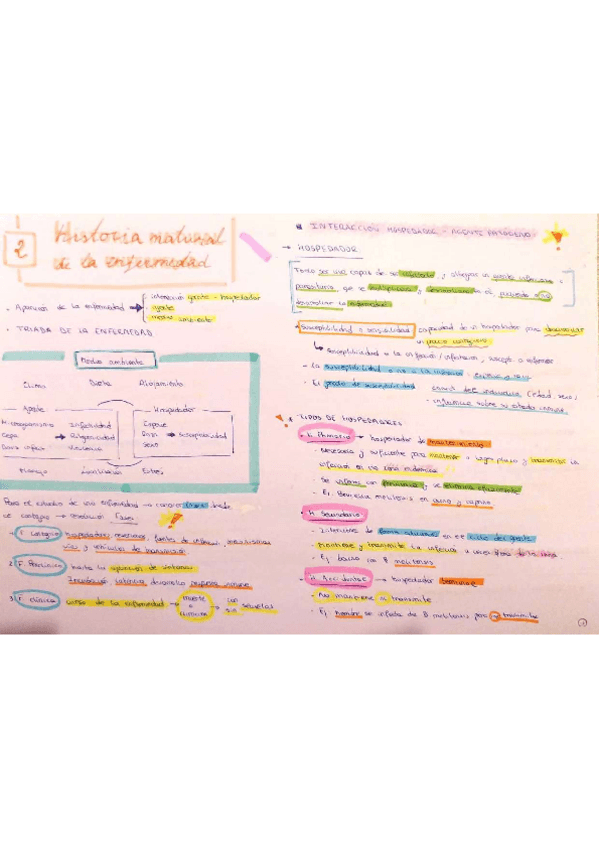 2
Historia natural
de la enfermedad
• Aparición de la enfermedad → interacción agente - hospedador
agente
medio ambiente
• TRIADA DE LA ENFERMEDAD
Medio ambiente
Clima Dieta Alojamiento
Agente Hospedador
Microorganismo → Infectividad Especie
Cepa Patogenicidad Raza → Susceptibilidad
Dosis infect Virulencia Sexo
Manejo Ventilación Estrés
Para el estudio de una enfermedad → conocer fases desde
el contagio → resolución Fases
1. F. Contagio
hospedadores, reservorios, fuentes de infección, mecanismos
vías y vehículos de transmisión
2. F. Preclínica hasta la aparición de síntomas
Incubación subclínica desarrolla respuesta inmune
3. F. clínica curso de la enfermedad → muerte o con secuelas
sin
INTERACCIÓN HOSPEDADOR - AGENTE PATÓGENO
→ HOSPEDADOR
Todo ser vivo capaz de ser infectado y albergar un agente infeccioso o
parasitario, que se multiplique y desarrolle en él, pueda o no
desarrollar la enfermedad
• Susceptibilidad o sensibilidad capacidad de un hospedador para desarrollar
un proceso
↳ susceptibilidad a la infección / infestación, suscept. a enfermar
- La susceptibilidad o no a la infección especie o raza
- El grado de susceptibilidad caract. del individuo (edad, sexo)
- influencia sobre su estado inmune
* TIPOS DE HOSPEDADORES
• H. Primario → hospedador de mantenimiento
- Necesario y suficiente para mantener a largo plazo y transmitir la
infección en una zona endémica
- Se infecta con facilidad y se elimina eficazmente
- Ej. Brucella melitensis en ovino y caprino
• H. Secundario
- Interviene de forma adicional en el ciclo del agente
- Mantiene y transmite la infección
- Ej. bovino con B melitensis
• H. Accidental → hospedador terminal
- No mantiene ni transmite
- Ej. hombre se infecta de B melitensis pero no transmite